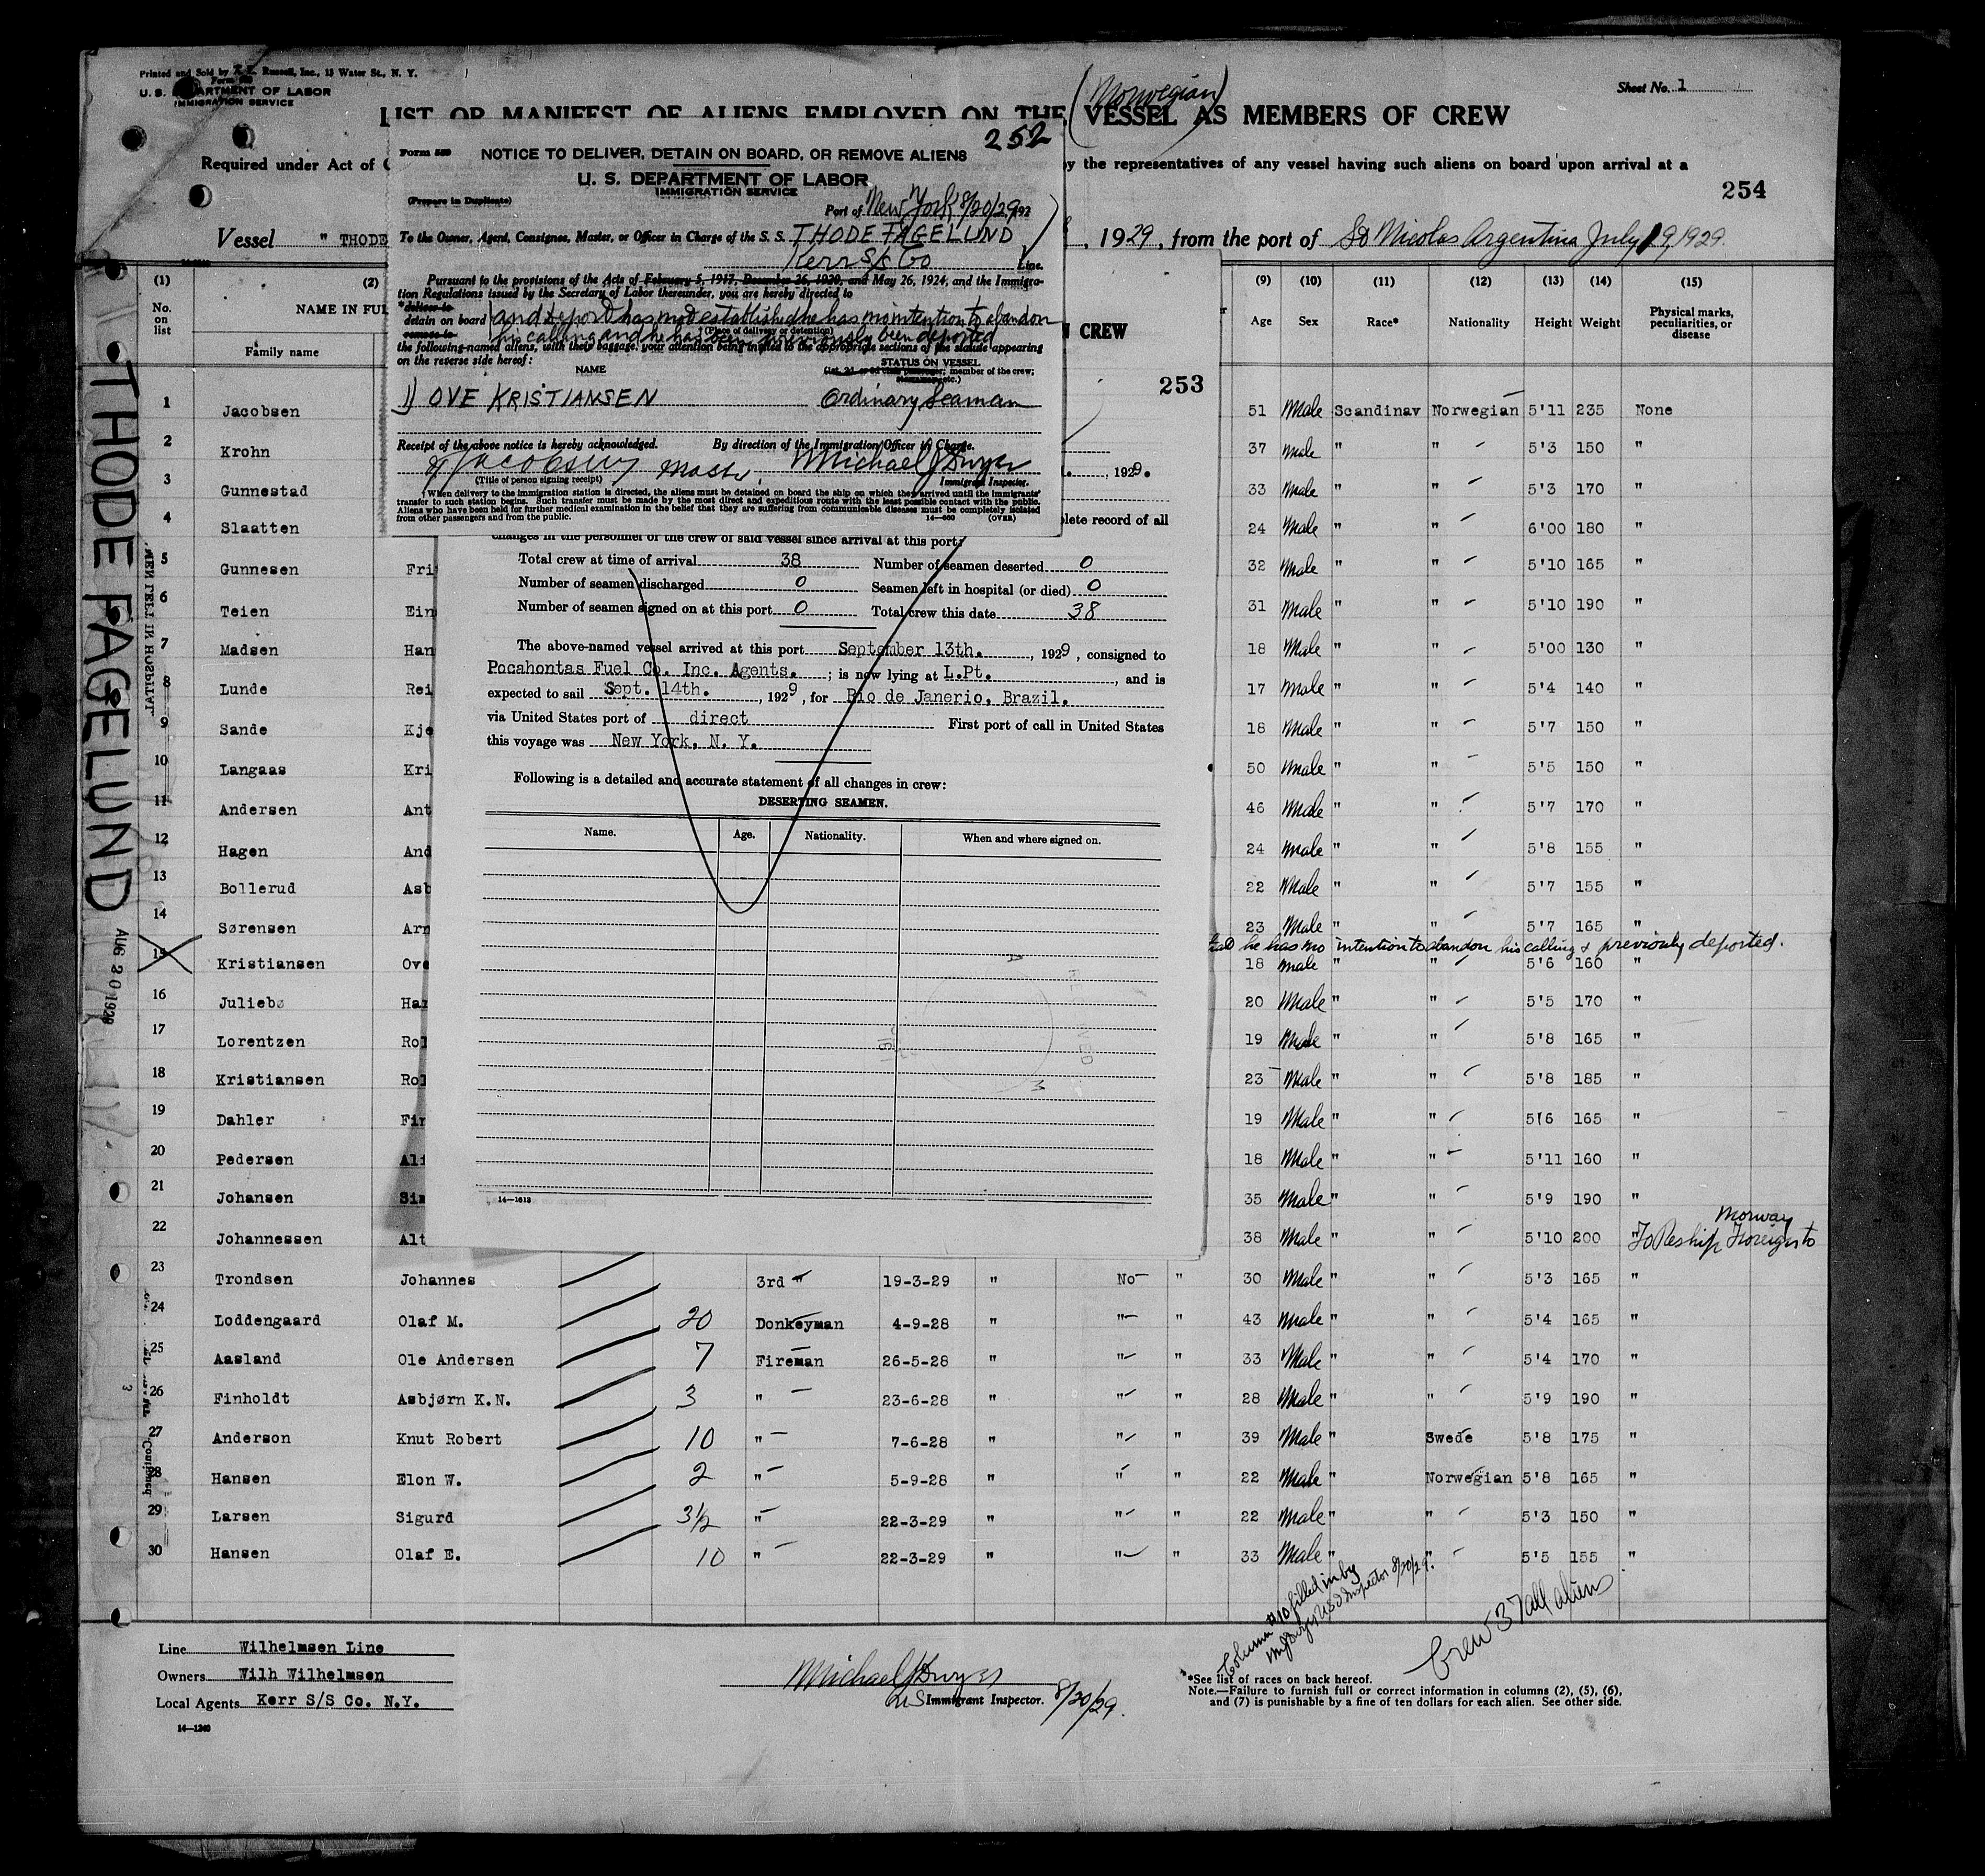 Printed and Sold by Russell, Inc., 13 Water St., N. Y.
U. S. DEPARTMENT OF LABOR
IMMIGRATION SERVICE
Sheet No. 1
(Norwegian)
LIST OR MANIFEST OF ALIENS EMPLOYED ON THE VESSEL AS MEMBERS OF CREW
Required under Act of
by the representatives of any vessel having such aliens on board upon arrival at a
254
Vessel " THODE
, 1929, from the port of Sn Nicolas Argentina July 19, 1929.
252
Form 539 NOTICE TO DELIVER, DETAIN ON BOARD, OR REMOVE ALIENS
U. S. DEPARTMENT OF LABOR
IMMIGRATION SERVICE
(Prepare in Duplicate)
Port of New York 8/20/29, 192
To the Owner, Agent, Consignee, Master, or Officer in Charge of the S. S. THODE FAGELUND
Kerr S/S Co Line.
Pursuant to the provisions of the Acts of February 5, 1917, December 26, 1920, and May 26, 1924, and the Immigra-
tion Regulations issued by the Secretary of Labor thereunder, you are hereby directed to
*deliver to
detain on board and deport has not established he has no intention to abandon
remove to
†(Place of delivery or detention)
his calling and he has been previously been deported
the following-named aliens, with their baggage: your attention being invited to the appropriate sections of the statute appearing
on the reverse side hereof:
NAME STATUS ON VESSEL
(1st, 2d, or 3d class passenger; member of the crew; stowaway, etc.)
1) OVE KRISTIANSEN Ordinary Seaman
Receipt of the above notice is hereby acknowledged. By direction of the Immigration Officer in Charge.
Jacobsen Master. Michael J Dwyer
(Title of person signing receipt) Immigrant Inspector.
† When delivery to the immigration station is directed, the aliens must be detained on board the ship on which they arrived until the immigrants'
transfer to such station begins. Such transfer must be made by the most direct and expeditious route with the least possible contact with the public.
Aliens who have been held for further medical examination in the belief that they are suffering from communicable diseases must be completely isolated
from other passengers and from the public. 14—660 (OVER)
N CREW
253
, 1929.
plete record of all
changes in the personnel of the crew of said vessel since arrival at this port:
Total crew at time of arrival 38 Number of seamen deserted 0
Number of seamen discharged 0 Seamen left in hospital (or died) 0
Number of seamen signed on at this port 0 Total crew this date 38
The above-named vessel arrived at this port September 13th. , 1929, consigned to
Pocahontas Fuel Co. Inc. Agents. ; is now lying at L.Pt. , and is
expected to sail Sept. 14th. , 1929, for Rio de Janerio, Brazil.
via United States port of direct First port of call in United States
this voyage was New York, N. Y.
Following is a detailed and accurate statement of all changes in crew:
DESERTING SEAMEN.
Name. Age. Nationality. When and where signed on.
14—1613
THODE FAGELUND
AUG 20 1929
MEN LEFT IN HOSPITAL
(1) (2) (9) (10) (11) (12) (13) (14) (15)
No. on list NAME IN FUL Age Sex Race* Nationality Height Weight Physical marks, peculiarities, or disease
Family name
1 Jacobsen 51 Male Scandinav Norwegian 5'11 235 None
2 Krohn 37 Male " " 5'3 150 "
3 Gunnestad 33 Male " " 5'3 170 "
4 Slaatten 24 Male " " 6'00 180 "
5 Gunnesen Fri 32 Male " " 5'10 165 "
6 Teien Ein 31 Male " " 5'10 190 "
7 Madsen Han 18 Male " " 5'00 130 "
8 Lunde Rei 17 Male " " 5'4 140 "
9 Sande Kje 18 Male " " 5'7 150 "
10 Langaas Kri 50 Male " " 5'5 150 "
11 Andersen Ant 46 Male " " 5'7 170 "
12 Hagen And 24 Male " " 5'8 155 "
13 Bollerud Asb 22 Male " " 5'7 155 "
14 Sørensen Arn 23 Male " " 5'7 165 "
he has no intention to abandon his calling & previously deported.
15 Kristiansen Ove 18 Male " " 5'6 160 "
16 Juliebø Har 20 Male " " 5'5 170 "
17 Lorentzen Rol 19 Male " " 5'8 165 "
18 Kristiansen Rol 23 Male " " 5'8 185 "
19 Dahler Fin 19 Male " " 5'6 165 "
20 Pedersen Alf 18 Male " " 5'11 160 "
21 Johansen Sim 35 Male " " 5'9 190 "
22 Johannessen Alt 38 Male " " 5'10 200 " To Reship Foreign to Norway
23 Trondsen Johannes 3rd " 19-3-29 " No " 30 Male " " 5'3 165 "
24 Loddengaard Olaf M. 20 Donkeyman 4-9-28 " " " 43 Male " " 5'4 165 "
25 Aasland Ole Andersen 7 Fireman 26-5-28 " " " 33 Male " " 5'4 170 "
26 Finholdt Asbjørn K.N. 3 " 23-6-28 " " " 28 Male " " 5'9 190 "
27 Anderson Knut Robert 10 " 7-6-28 " " " 39 Male " Swede 5'8 175 "
28 Hansen Elon W. 2 " 5-9-28 " " " 22 Male " Norwegian 5'8 165 "
29 Larsen Sigurd 3½ " 22-3-29 " " " 22 Male " " 5'3 150 "
30 Hansen Olaf E. 10 " 22-3-29 " " " 33 Male " " 5'5 155 "
Column #10 filled in by
M J Dwyer U.S. Inspector 8/20/29.
Crew 37 all aliens
Line Wilhelmsen Line
Owners Wilh Wilhelmsen
Local Agents Kerr S/S Co. N.Y.
14—1240
Michael J Dwyer
U S Immigrant Inspector. 8/20/29.
*See list of races on back hereof.
Note.—Failure to furnish full or correct information in columns (2), (5), (6),
and (7) is punishable by a fine of ten dollars for each alien. See other side.